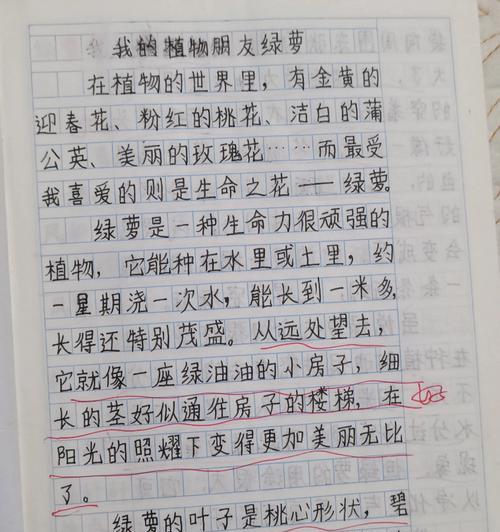 我的植物朋友绿萝
在植物的世界里，有金黄的
迎春花、粉红的桃花、洁白的蒲
公英、美丽的玫瑰花……而最受
我喜爱的则是生命之花——绿萝。
绿萝是一种生命力很顽强的
植物，它能种在水里或土里，约
一星期浇一次水，能长到一米多，
长得还特别茂盛。从远处望去，
它就像一座绿油油的小房子，细
长的茎好似通往房子的楼梯，在 好
阳光的照耀下变得更加美丽无比
了。
绿萝的叶子是桃心形状，碧